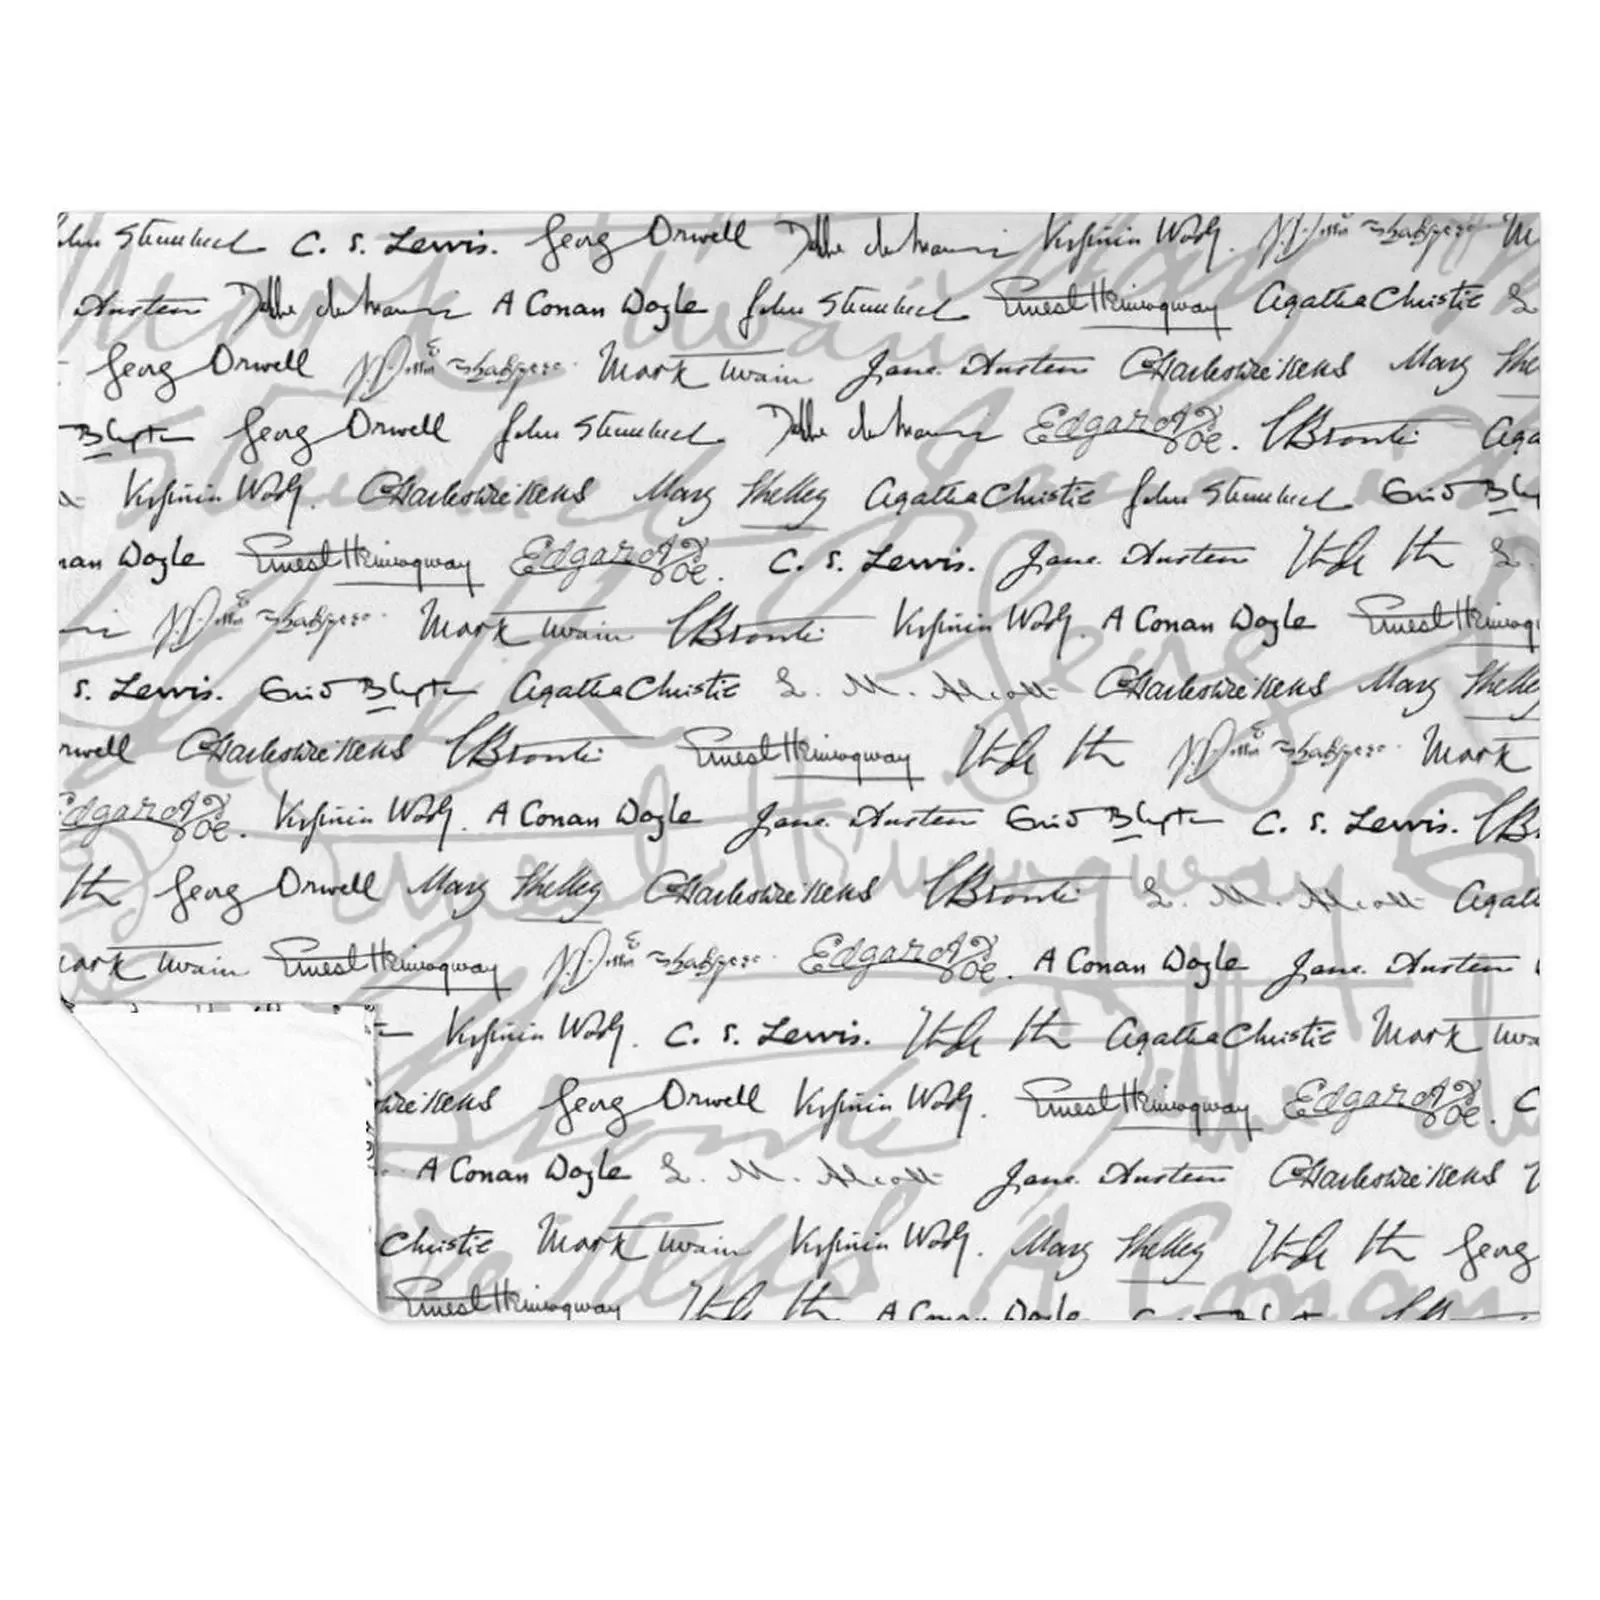 John Steinbeck C. S. Lewis. Georg Orwell Daphne du Maurier Virginia Woolf. Shakspere M
Austen Daphne du Maurier A Conan Doyle John Steinbeck Ernest Hemingway Agatha Christie L
Georg Orwell Shakspere Mark Twain Jane Austen Charles Dickens Mary She
Blyton Georg Orwell John Steinbeck Daphne du Maurier Edgar A Poe. CBronte Aga
Virginia Woolf. Charles Dickens Mary Shelley Agatha Christie John Steinbeck Enid Bly
nan Doyle Ernest Hemingway Edgar A Poe. C. S. Lewis. Jane Austen L.
Shakspere Mark Twain CBronte Virginia Woolf. A Conan Doyle Ernest Heming
S. Lewis. Enid Blyton Agatha Christie L. M. Alcott Charles Dickens Mary Shelley
rwell Charles Dickens CBronte Ernest Hemingway Shakspere Mark
Edgar A Poe. Virginia Woolf. A Conan Doyle Jane Austen Enid Blyton C. S. Lewis. CB
Georg Orwell Mary Shelley Charles Dickens CBronte L. M. Alcott Agat
ark Twain Ernest Hemingway Shakspere Edgar A Poe. A Conan Doyle Jane Austen
Virginia Woolf. C. S. Lewis. Agatha Christie Mark Twa
Dickens Georg Orwell Virginia Woolf. Ernest Hemingway Edgar A Poe. C
A Conan Doyle L. M. Alcott Jane Austen Charles Dickens
Christie Mark Twain Virginia Woolf. Mary Shelley Georg
Ernest Hemingway A Conan Doyle